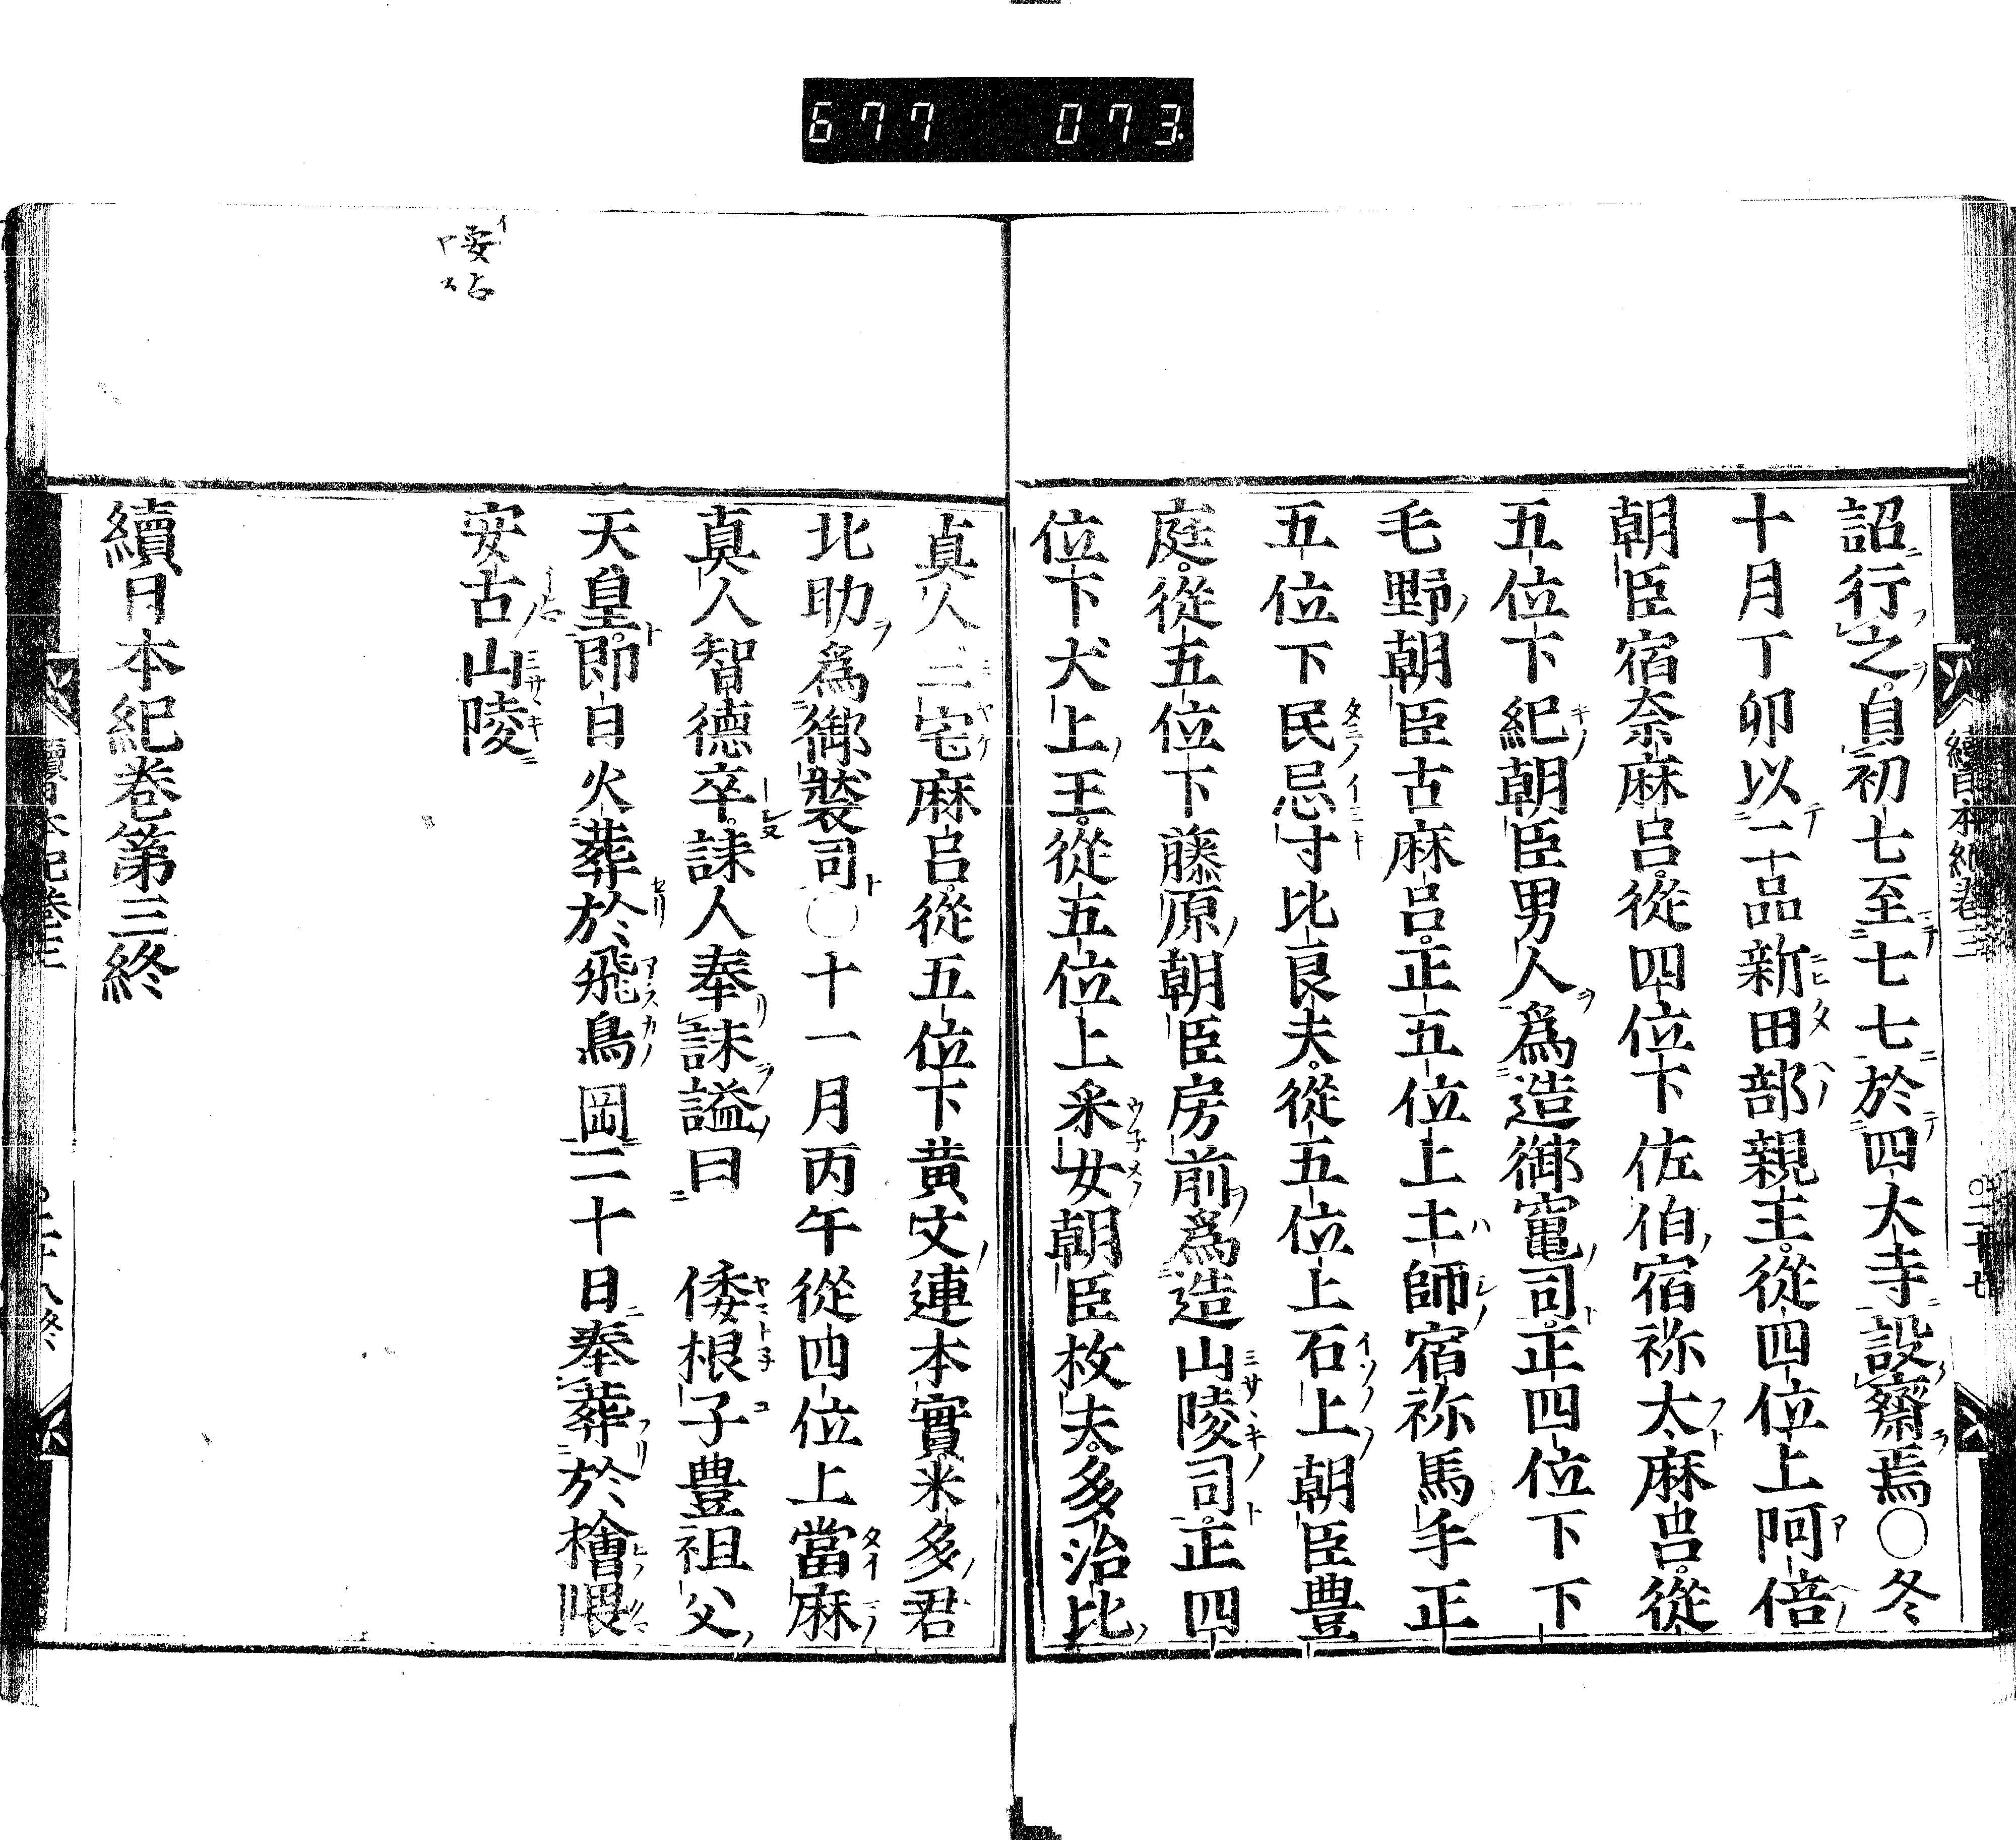 677 073
詔行之。自初七至七七於四大寺設齋焉○冬
十月丁卯以二品新田部親王。從四位上阿倍
朝臣宿奈麻呂。從四位下佐伯宿祢太麻呂。從
五位下紀朝臣男人爲造御竈司。正四位下下
毛野朝臣古麻呂。正五位上土師宿祢馬手正
五位下民忌寸比良夫。從五位上石上朝臣豊
庭。從五位下藤原朝臣房前爲造山陵司。正四
位下犬上王。從五位上采女朝臣枚夫。多治比
真人三宅麻呂。從五位下黄文連本實米多君
北助爲御裝司○十一月丙午從四位上當麻
真人智德卒。誄人奉誄謚曰 倭根子豊祖父
天皇。即日火葬於飛鳥岡二十日奉葬於檜隈
安古山陵
續日本紀巻第三終
續日本紀巻三